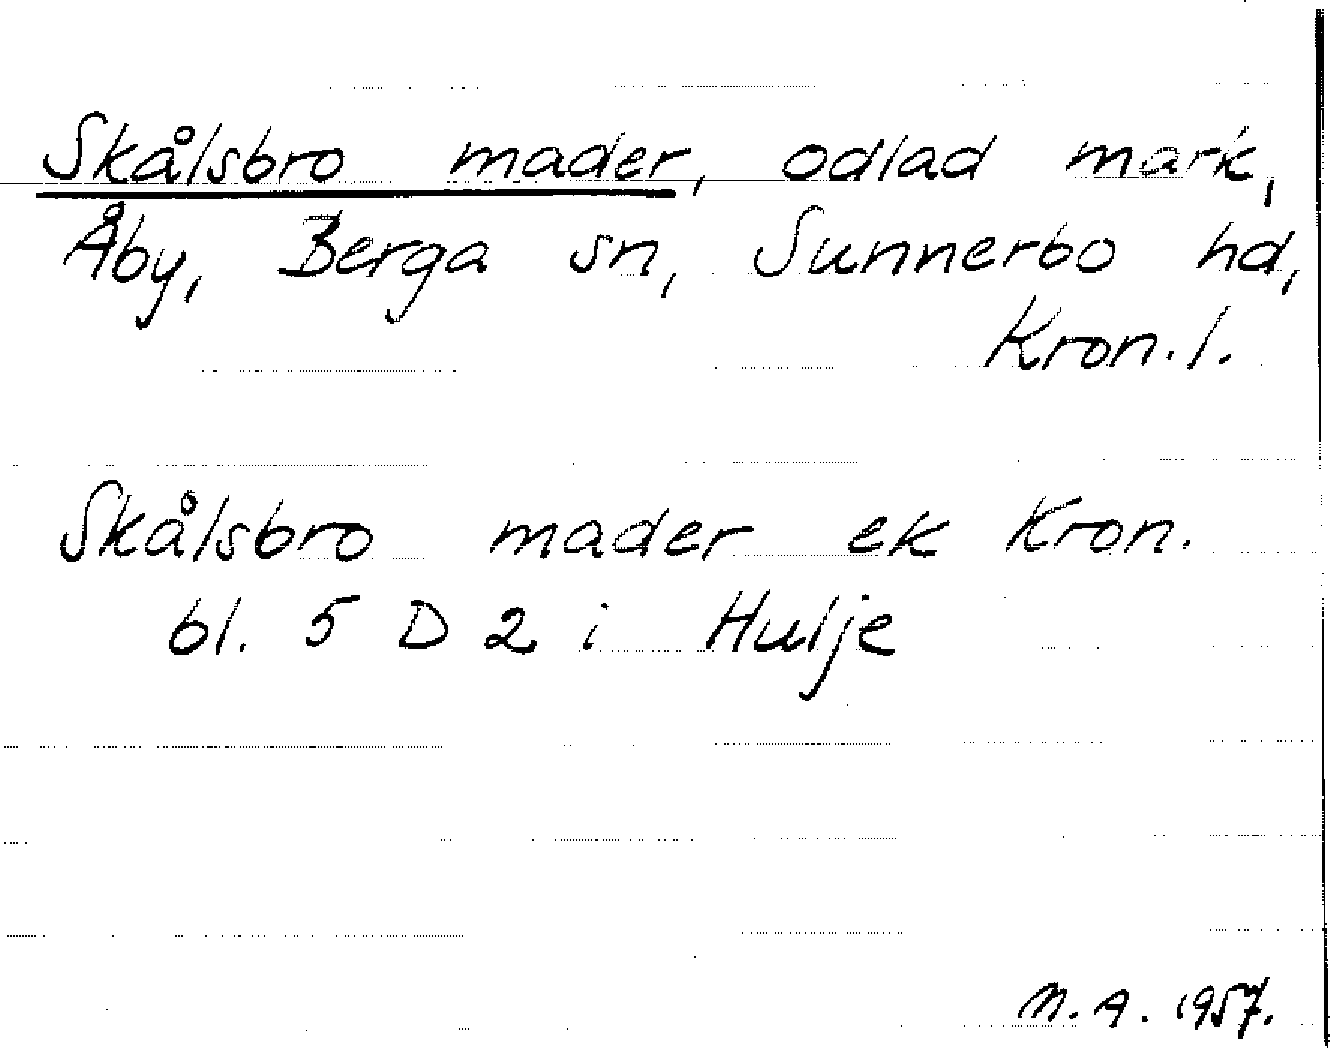 Skålsbro mader, odlad mark,
Åby, Berga sn, Sunnerbo hd,
Kron. l.
Skålsbro mader ek Kron.
bl. 5 D 2 i Hulje
N. A. 1957.